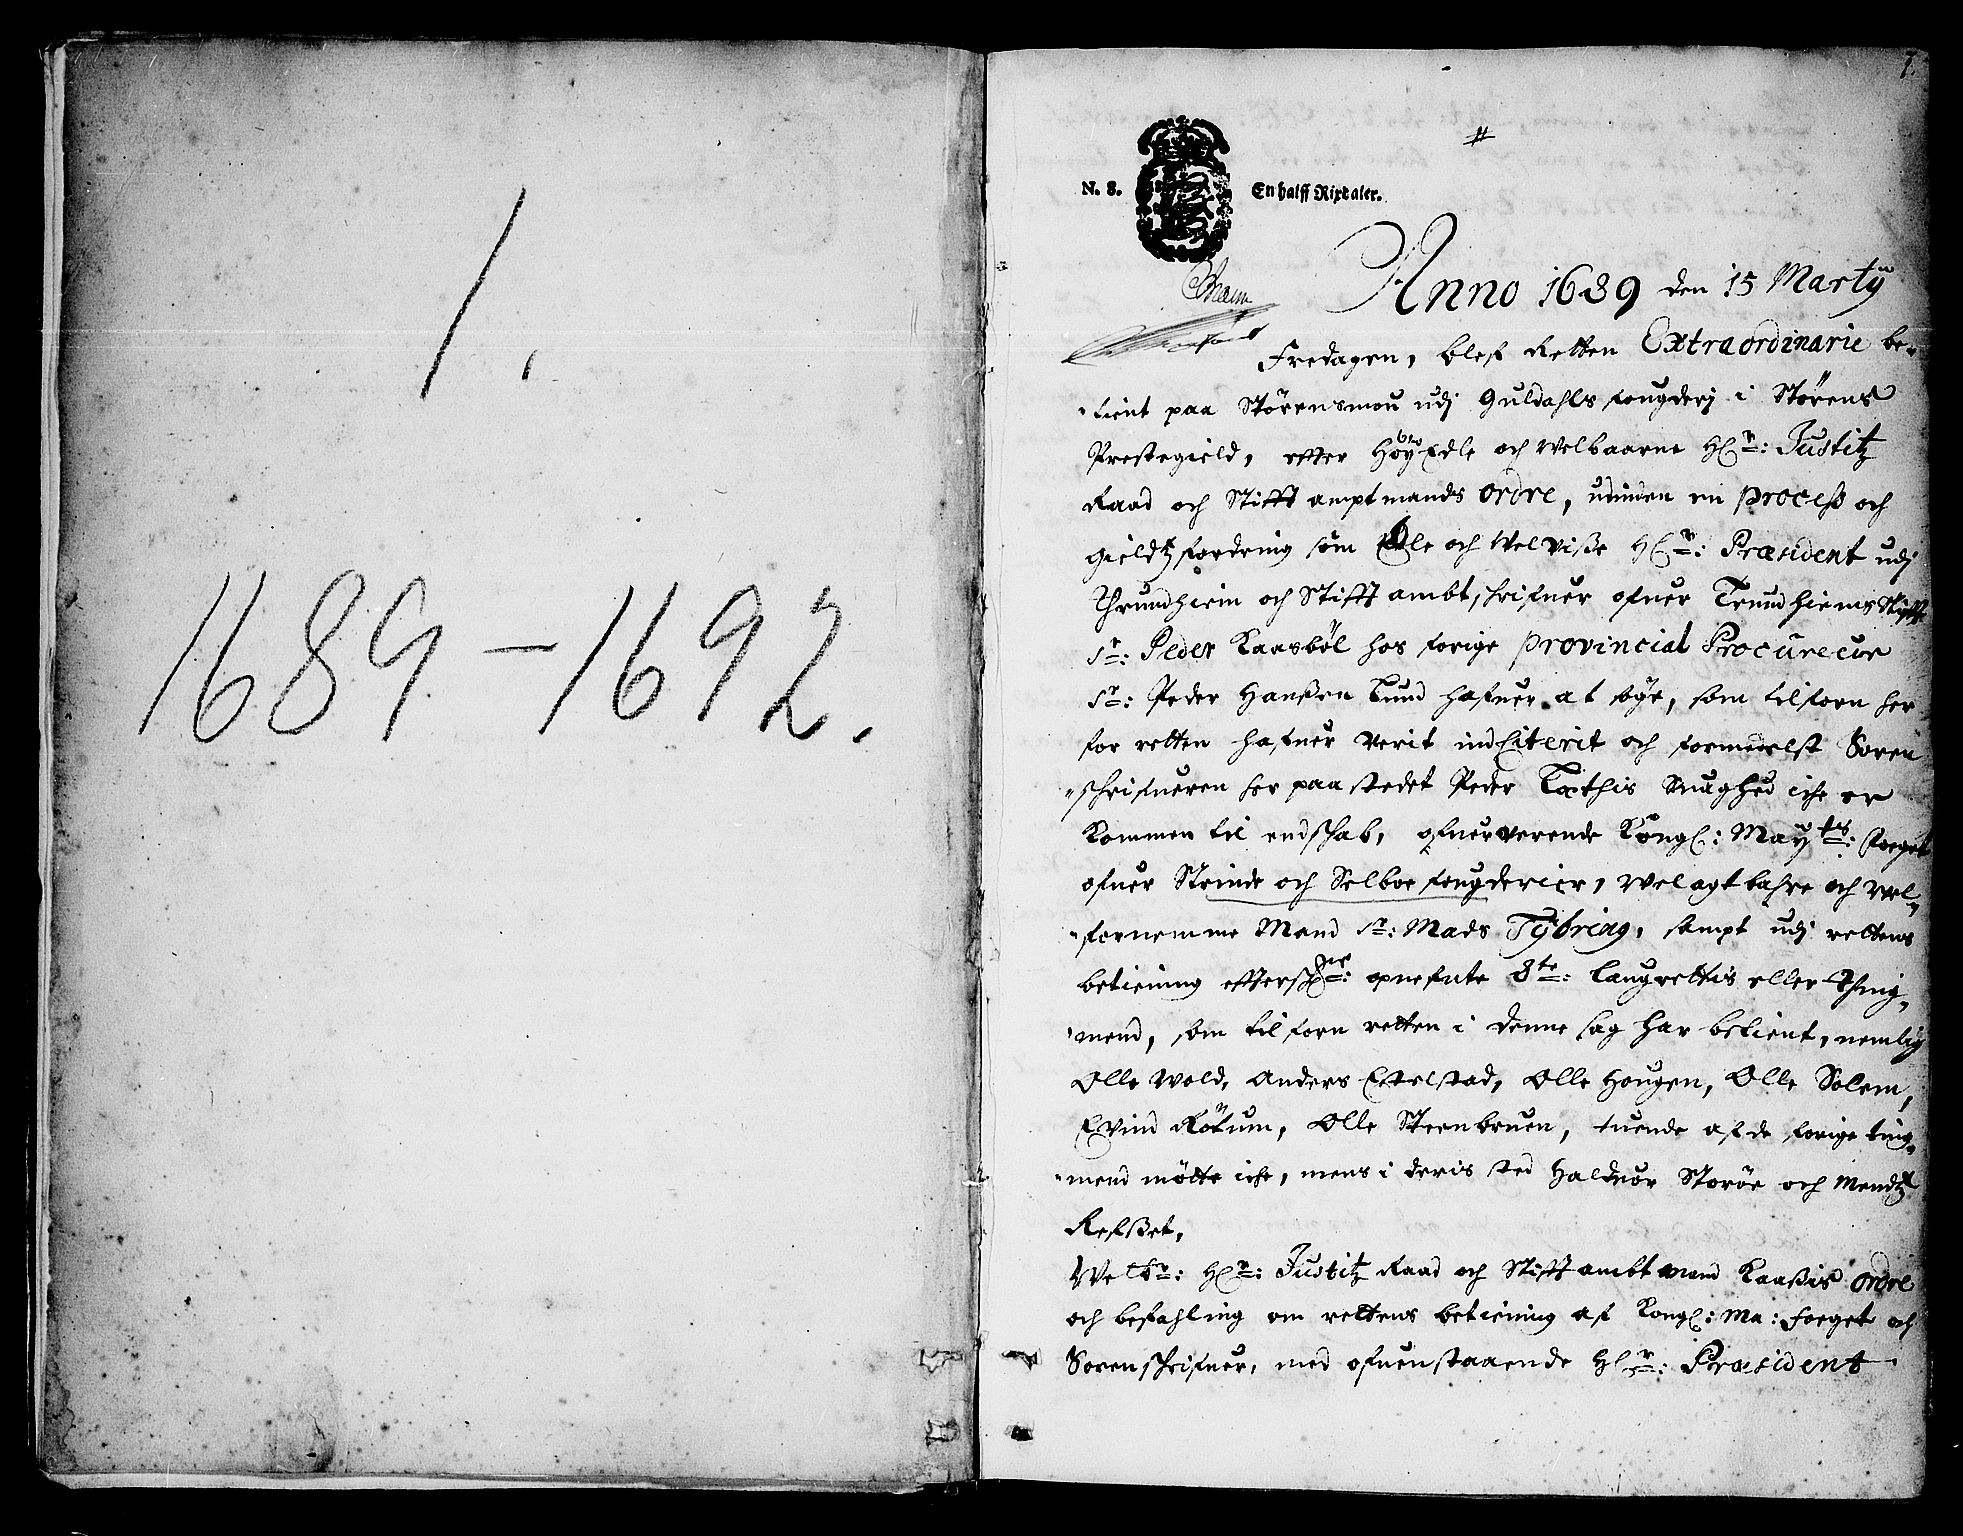 1.
1689 – 1692.
1.
N. 8. En halff Rixdaler.
Anno 1689 den 15 Martij
Fredagen, blef Retten Extraordinarie be-
tient paa Störensmou udj Guldahls fougderj i Störens
Prestegield, effter HöyEdle och Welbaarne Hr: Justitz
Raad och Stifft amptmands ordre, udinden en process och
gieldtz fordring som Edle och Welviisse Hr: Præsident udj
Thrundhiem och Stifft ambtschrifuer ofuer Trundhiems Stifft
Sr: Peder Kaasböl hos forige provincial Procureur
Sr: Peder Hanssen Lund hafuer at söge, som tilforn her
for retten hafuer verit indCiterit och formedelst Soren
schrifueren her paa stedet Peder Svaghed iche er
kommen til endschab, ofuerverende Kongl: Mayts: Foeget
ofuer Strinde och Selboe fougderier, Welagtbahre och vel-
fornemme Mand Sr: Mads Tybring, sampt udj rettens
betiening effterschne: opnefnte 8te: Laugrettis eller Thing-
mend, som tilforn retten i denne sag har betient, nemlig
Olle Wold, Anders Estelstad, Olle Hougen, Olle Solem,
Evind Rötum, Olle Steenbruen, tuende af de forige ting-
mend mötte iche, mens i deris sted Halduor Storöe och Mendtz
Refsset,
Welbr: Hr: Justitz Raad och Stifft ambtmand Kaassis ordre
och befahling om rettens betiening af Kongl: Ma: foeget och
Sorenschrifuer, med ofuenstaaende Hr: Præsident